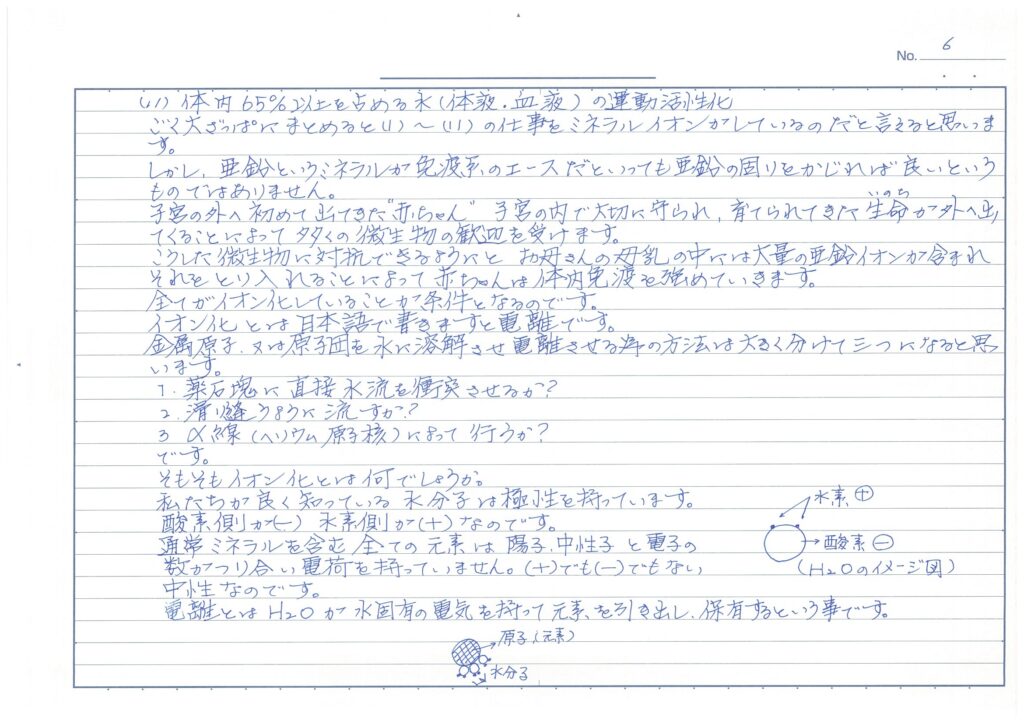 No. 6
(11) 体内65%以上を占める水(体液・血液)の運動活性化
ごく大ざっぱにまとめると(1)〜(11)の仕事をミネラルイオンがしているのだと言えると思いま
す。
しかし、亜鉛というミネラルが免疫系のエースだといっても亜鉛の固りをかじれば良いという
ものではありません。
子宮の外へ初めて出てきた"赤ちゃん"子宮の内で大切に守られ、育てられてきた生命(いのち)が外へ出
てくることによって多々くの微生物の歓迎を受けます。
こうした微生物に対抗できるようにと お母さんの母乳の中には大量の亜鉛イオンが含まれ
それをとり入れることによって赤ちゃんは体内免疫を強めていきます。
全てがイオン化していることが条件となるのです。
イオン化とは日本語で書きますと電離です。
金属原子、又は原子団を水に溶解させ電離させる為の方法は大きく分けて三つになると思
います。
1. 薬石塊に直接水流を衝突させるか?
2. 滑り縫うように流すか?
3 α線(ヘリウム原子核)によって行うか?
です。
そもそもイオン化とは何でしょうか。
私たちが良く知っている水分子は極性を持っています。
酸素側が(−) 水素側が(+)なのです。
通常ミネラルを含む全ての元素は陽子、中性子と電子の
数がつり合い電荷を持っていません。(+)でも(−)でもない
中性なのです。
水素 ⊕
酸素 ⊖
(H2Oのイメージ図)
電離とはH2Oが水固有の電気を持って元素を引き出し、保有するという事です。
原子(元素)
水分子